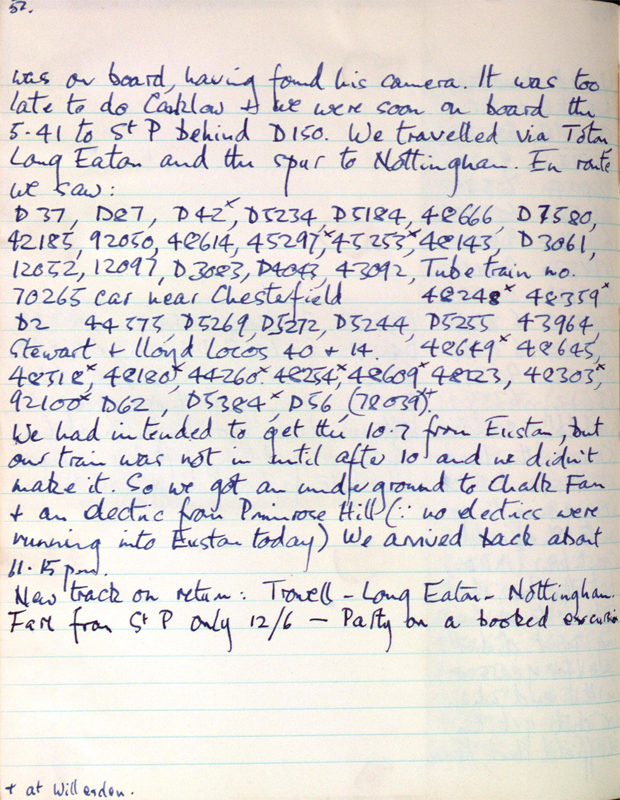 52.
was on board, having found his camera. It was too
late to do Canklow + we were soon on board the
5.41 to St P behind D150. We travelled via Toton
Long Eaton and the spur to Nottingham. En route
we saw:
D37, D87, D42x, D5234, D5184, 48666 D7580,
42185, 92050, 48614, 45297,x 45253x, 48143, D3061,
12052, 12097, D3083, D4043, 43092, Tube train no.
70265 car near Chesterfield 48248x 48359x
D2 44575, D5269, D5272, D5244, D5255 43964,
Stewart + Lloyd Locos 40 + 14. 48649x 48645,
48318x, 48180x 44260x 48254x, 48609x 48123, 48303x,
92100x D62, D5384x, D56 (78039)+.
We had intended to get the 10.7 from Euston, but
our train was not in until after 10 and we didn't
make it. So we got an underground to Chalk Farm
+ an electric from Primrose Hill (∵ no electrics were
running into Euston today) We arrived back about
11.15 pm.
New track on return: Trowell - Long Eaton - Nottingham.
Fare from St P only 12/6 — Party on a booked excursion
+ at Willesden.